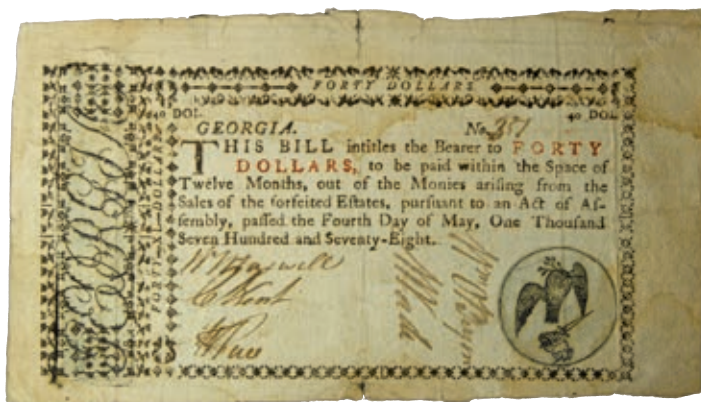 FORTY DOLLARS
40 DOL. 40 DOL.
GEORGIA. No. 351
THIS BILL intitles the Bearer to FORTY
DOLLARS, to be paid within the Space of
Twelve Months, out of the Monies arising from the
Sales of the forfeited Estates, pursuant to an Act of As-
sembly, passed the Fourth Day of May, One Thousand
Seven Hundred and Seventy-Eight.
Wm Maxwell
C Kent
FORTY—XL—DOLLARS